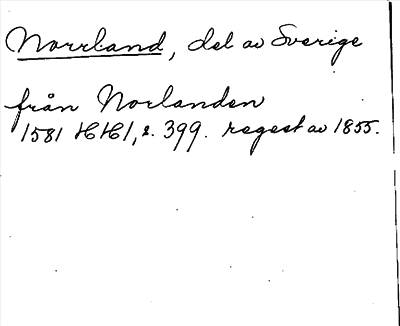 Norrland, del av Sverige
från Norlanden
1581 HH1, s. 399. regest av 1855.